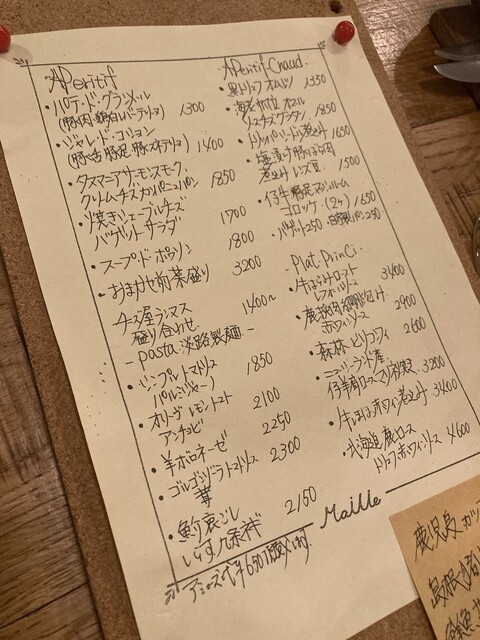 APeritif
・パテ・ド・グランメール
(豚肉・鶏白レバーテリーヌ) 1300
・ジャレ・ド・コション
(豚スネ 豚足 豚耳テリーヌ) 1400
・タスマニアサーモンスモーク
クリームチーズ カンパーニュパン 1850
・焼きシェーブルチーズ
バゲットサラダ 1700
・スープ・ド・ポワソン 1800
・おまかせ前菜盛り 3200
チーズ屋ランマス
盛り合わせ 1400〜
- pasta 淡路製麺 -
・シンプルトマトソース
パルミジャーノ 1850
・オリーヴ レモン トマト
アンチョビ 2100
・羊ボロネーゼ 2250
・ゴルゴンゾーラトマトソース
茸 2300
・魚介裏ごし
いらす九条ネギ 2150
アミューズ・ペイ 650
APeritif Chaud
・黒トリュフ オムレツ 1350
・海老 帆立
チーズグラタン 1850
・トリッパ 煮込み 1650
・塩漬け豚ほほ肉
煮込み レンズ豆 1500
・仔牛 豚足 マッシュルーム
コロッケ (2ヶ) 1650
・バゲット 250 自家製パン 250
- Plat Princi -
・牛はらみロースト
ソース 3400
・鹿挽肉 網脂包み
赤ワインソース 2900
・森林どりコンフィ 2600
・ニュージーランド産
仔羊肩ロース 3200
・牛ほほ赤ワイン煮込み 3400
・北海道 鹿ロース
トリュフ赤ワインソース 4600
Maille
鹿児島 カツ
島根